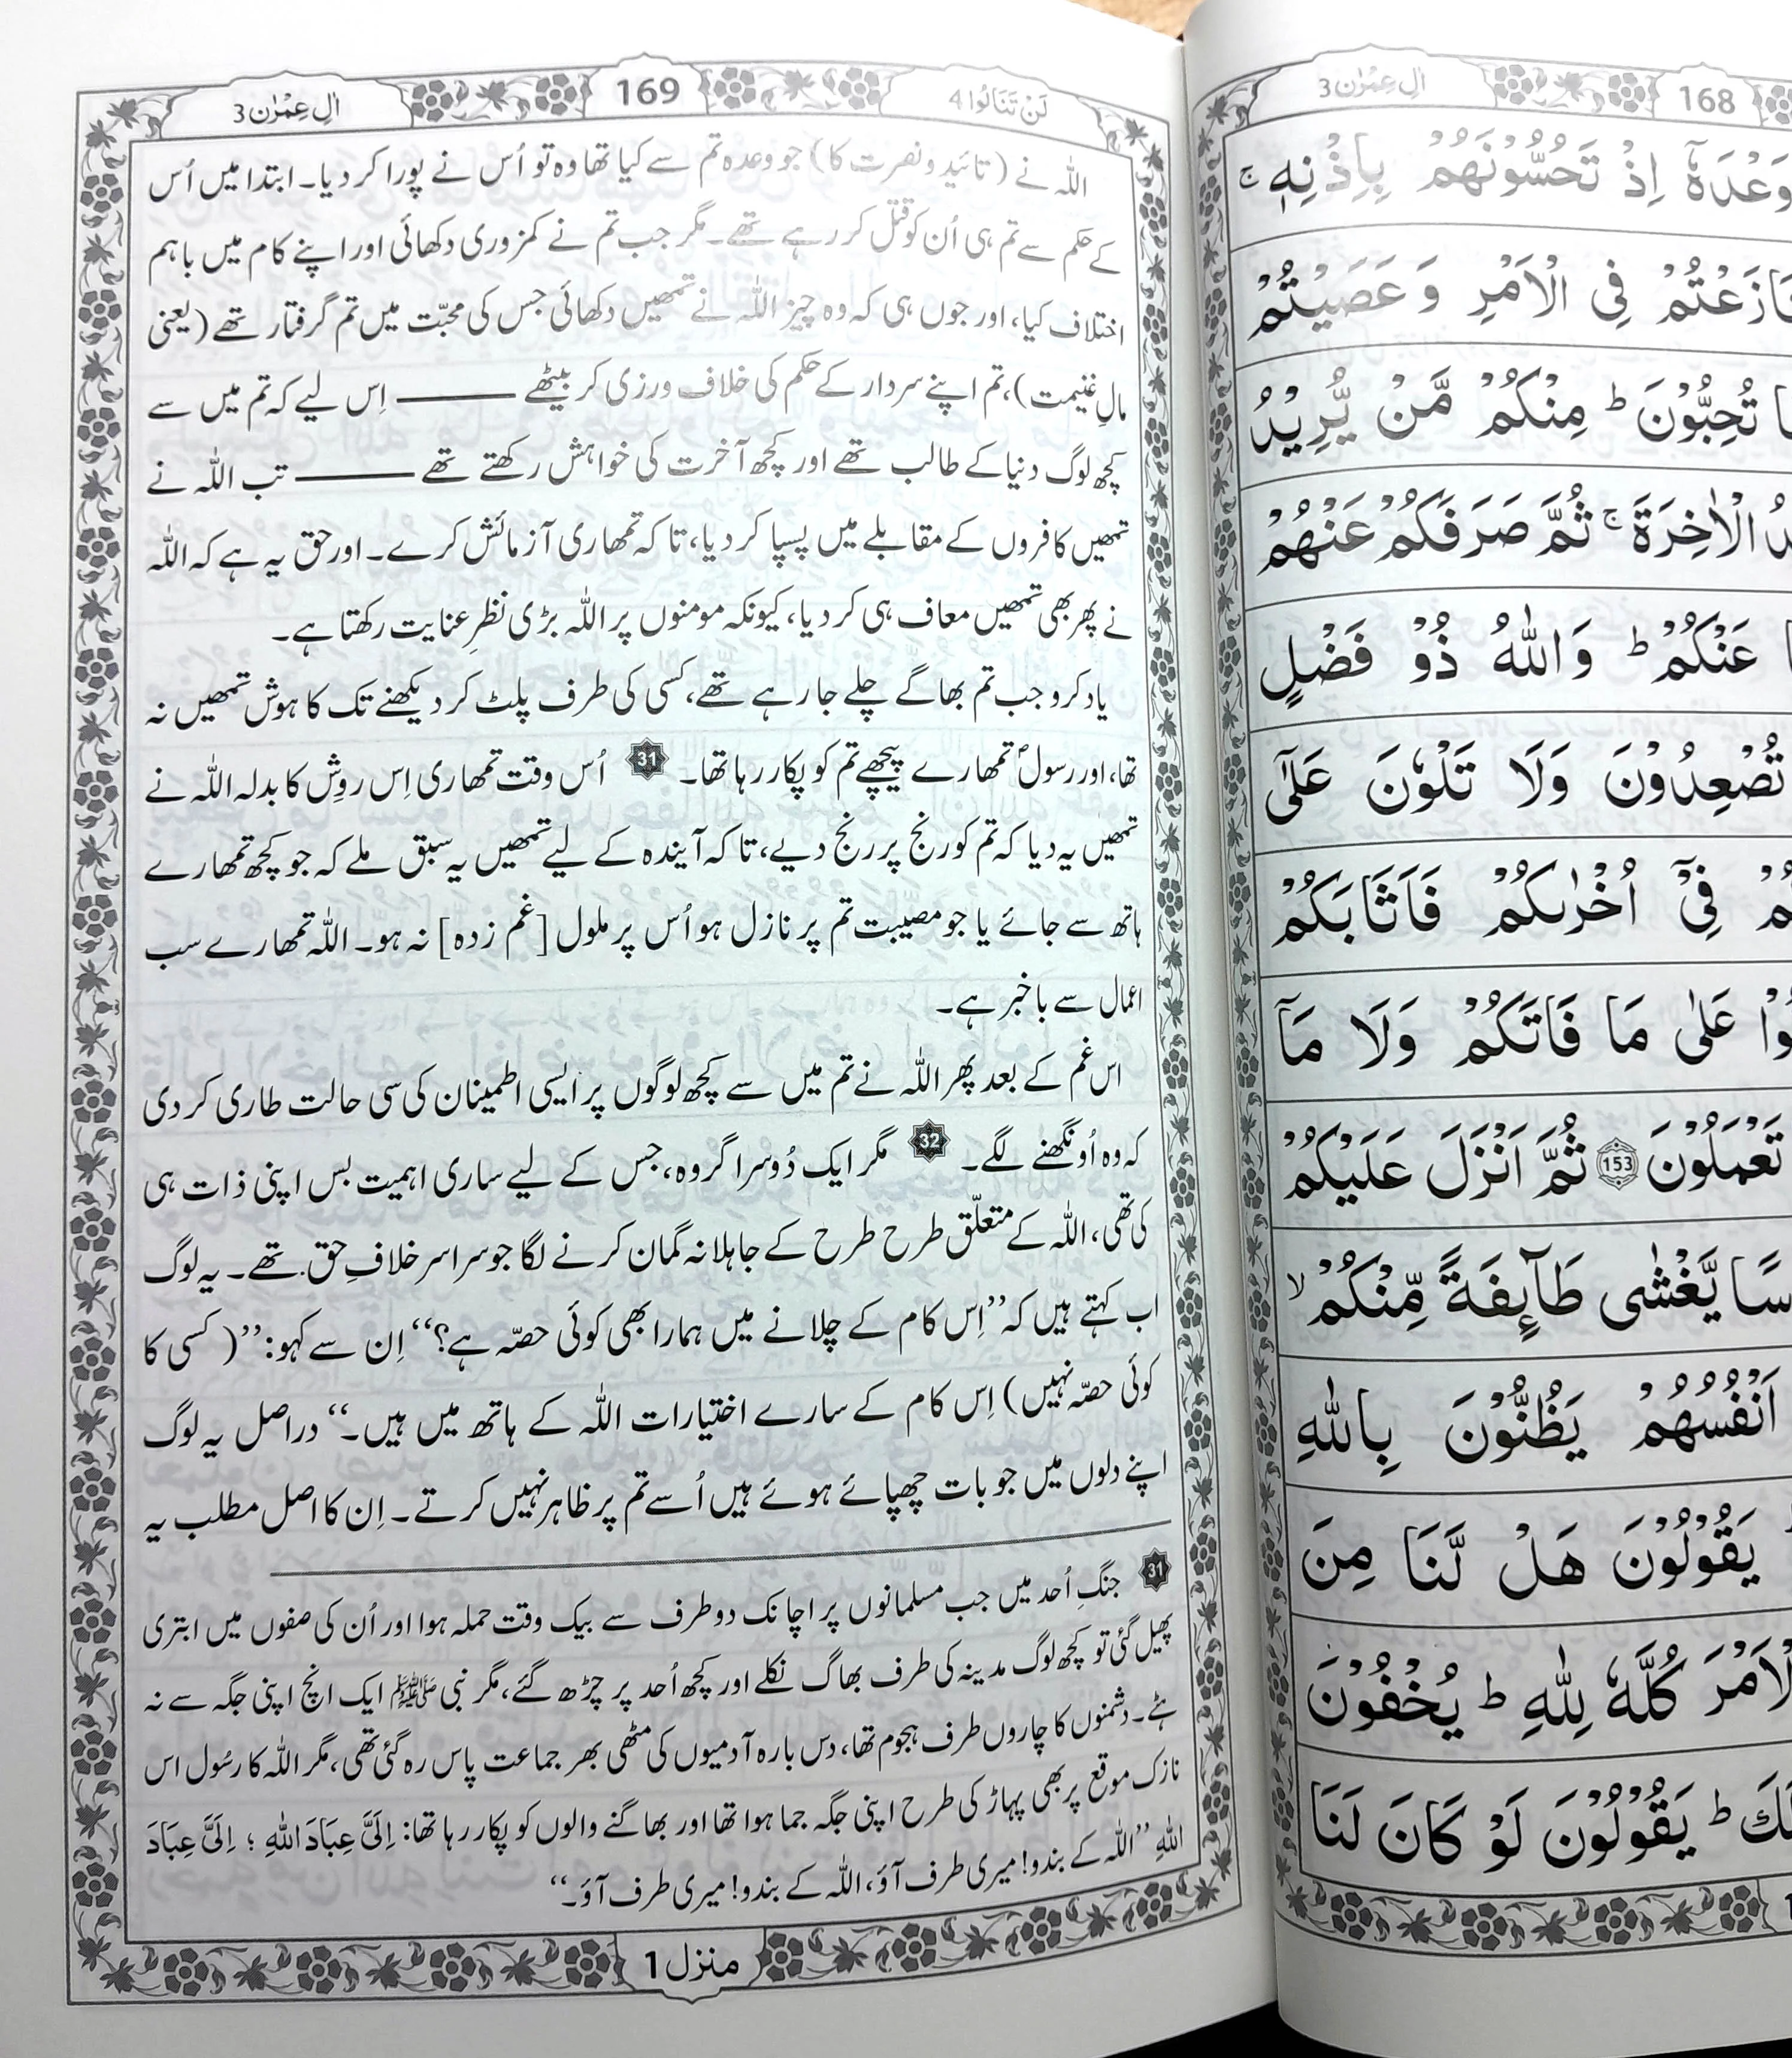 اٰلِ عِمْرٰن 3
168
وَعْدَهٗۤ اِذْ تَحُسُّوْنَهُمْ بِاِذْنِهٖ ۚ
فِی الْاَمْرِ وَ عَصَیْتُمْ
تُحِبُّوْنَ ؕ مِنْكُمْ مَّنْ یُّرِیْدُ
الْاٰخِرَةَ ۚ ثُمَّ صَرَفَكُمْ عَنْهُمْ
عَنْكُمْ ؕ وَ اللّٰهُ ذُوْ فَضْلٍ
تُصْعِدُوْنَ وَلَا تَلْوٗنَ عَلٰۤی
فِیْۤ اُخْرٰىكُمْ فَاَثَابَكُمْ
عَلٰی مَا فَاتَكُمْ وَلَا مَاۤ
تَعْمَلُوْنَ 153 ثُمَّ اَنْزَلَ عَلَیْكُمْ
یَّغْشٰی طَآىِٕفَةً مِّنْكُمْ ۙ
اَنْفُسُهُمْ یَظُنُّوْنَ بِاللّٰهِ
یَقُوْلُوْنَ هَلْ لَّنَا مِنَ
كُلَّهٗ لِلّٰهِ ؕ یُخْفُوْنَ
ؕ یَقُوْلُوْنَ لَوْ كَانَ لَنَا
لَنْ تَنَالُوا 4
169
اٰلِ عِمْرٰن 3
اللہ نے (تائید و نصرت کا) جو وعدہ تم سے کیا تھا وہ تو اُس نے پورا کر دیا۔ ابتدا میں اُس
کے حکم سے تم ہی اُن کو قتل کر رہے تھے۔ مگر جب تم نے کمزوری دکھائی اور اپنے کام میں باہم
اختلاف کیا، اور جوں ہی کہ وہ چیز اللہ نے تمھیں دکھائی جس کی محبّت میں تم گرفتار تھے (یعنی
مالِ غنیمت)، تم اپنے سردار کے حکم کی خلاف ورزی کر بیٹھے ——— اِس لیے کہ تم میں سے
کچھ لوگ دنیا کے طالب تھے اور کچھ آخرت کی خواہش رکھتے تھے ——— تب اللہ نے
تمھیں کافروں کے مقابلے میں پسپا کر دیا، تاکہ تمھاری آزمائش کرے۔ اور حق یہ ہے کہ اللہ
نے پھر بھی تمھیں معاف ہی کر دیا، کیونکہ مومنوں پر اللہ بڑی نظرِ عنایت رکھتا ہے۔
یاد کرو جب تم بھاگے چلے جا رہے تھے، کسی کی طرف پلٹ کر دیکھنے تک کا ہوش تمھیں نہ
تھا، اور رسولؐ تمھارے پیچھے تم کو پکار رہا تھا۔ 31 اُس وقت تمھاری اِس روِش کا بدلہ اللہ نے
تمھیں یہ دیا کہ تم کو رنج پر رنج دیے، تاکہ آیندہ کے لیے تمھیں یہ سبق ملے کہ جو کچھ تمھارے
ہاتھ سے جائے یا جو مصیبت تم پر نازل ہو اُس پر ملول [غم زدہ] نہ ہو۔ اللہ تمھارے سب
اعمال سے با خبر ہے۔
اس غم کے بعد پھر اللہ نے تم میں سے کچھ لوگوں پر ایسی اطمینان کی سی حالت طاری کر دی
کہ وہ اُونگھنے لگے۔ 32 مگر ایک دُوسرا گروہ، جس کے لیے ساری اہمیت بس اپنی ذات ہی
کی تھی، اللہ کے متعلّق طرح طرح کے جاہلانہ گمان کرنے لگا جو سراسر خلافِ حق تھے۔ یہ لوگ
اب کہتے ہیں کہ ”اِس کام کے چلانے میں ہمارا بھی کوئی حصّہ ہے؟“ اِن سے کہو: ”(کسی کا
کوئی حصّہ نہیں) اِس کام کے سارے اختیارات اللہ کے ہاتھ میں ہیں۔“ دراصل یہ لوگ
اپنے دلوں میں جو بات چھپائے ہوئے ہیں اُسے تم پر ظاہر نہیں کرتے۔ اِن کا اصل مطلب یہ
31 جنگِ اُحد میں جب مسلمانوں پر اچانک دو طرف سے بیک وقت حملہ ہوا اور اُن کی صفوں میں ابتری
پھیل گئی تو کچھ لوگ مدینہ کی طرف بھاگ نکلے اور کچھ اُحد پر چڑھ گئے، مگر نبی ﷺ ایک انچ اپنی جگہ سے نہ
ہٹے۔ دشمنوں کا چاروں طرف ہجوم تھا، دس بارہ آدمیوں کی مٹھی بھر جماعت پاس رہ گئی تھی، مگر اللہ کا رسُول اس
نازک موقع پر بھی پہاڑ کی طرح اپنی جگہ جما ہوا تھا اور بھاگنے والوں کو پکار رہا تھا: اِلَیَّ عِبَادَ اللّٰهِ ؛ اِلَیَّ عِبَادَ
اللّٰهِ ”اللہ کے بندو! میری طرف آؤ، اللہ کے بندو! میری طرف آؤ۔“
منزل 1